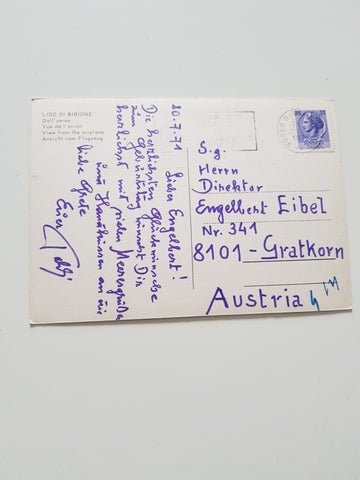 LIDO DI BIBIONE
Dall'aereo
Vue de l'avion
View from the airplane
Ansicht vom Flugzeug
20.7.71
Lieber Engelbert!
Die herzlichsten Glückwünsche
zum Geburtstag wünscht Dir
herzlichst mit vielen Meeresgrüßen
und Handküssen an die
liebe Grete
Euer
S.g.
Herrn
Direktor
Engelbert Eibel
Nr. 341
8101 - Gratkorn
Austria